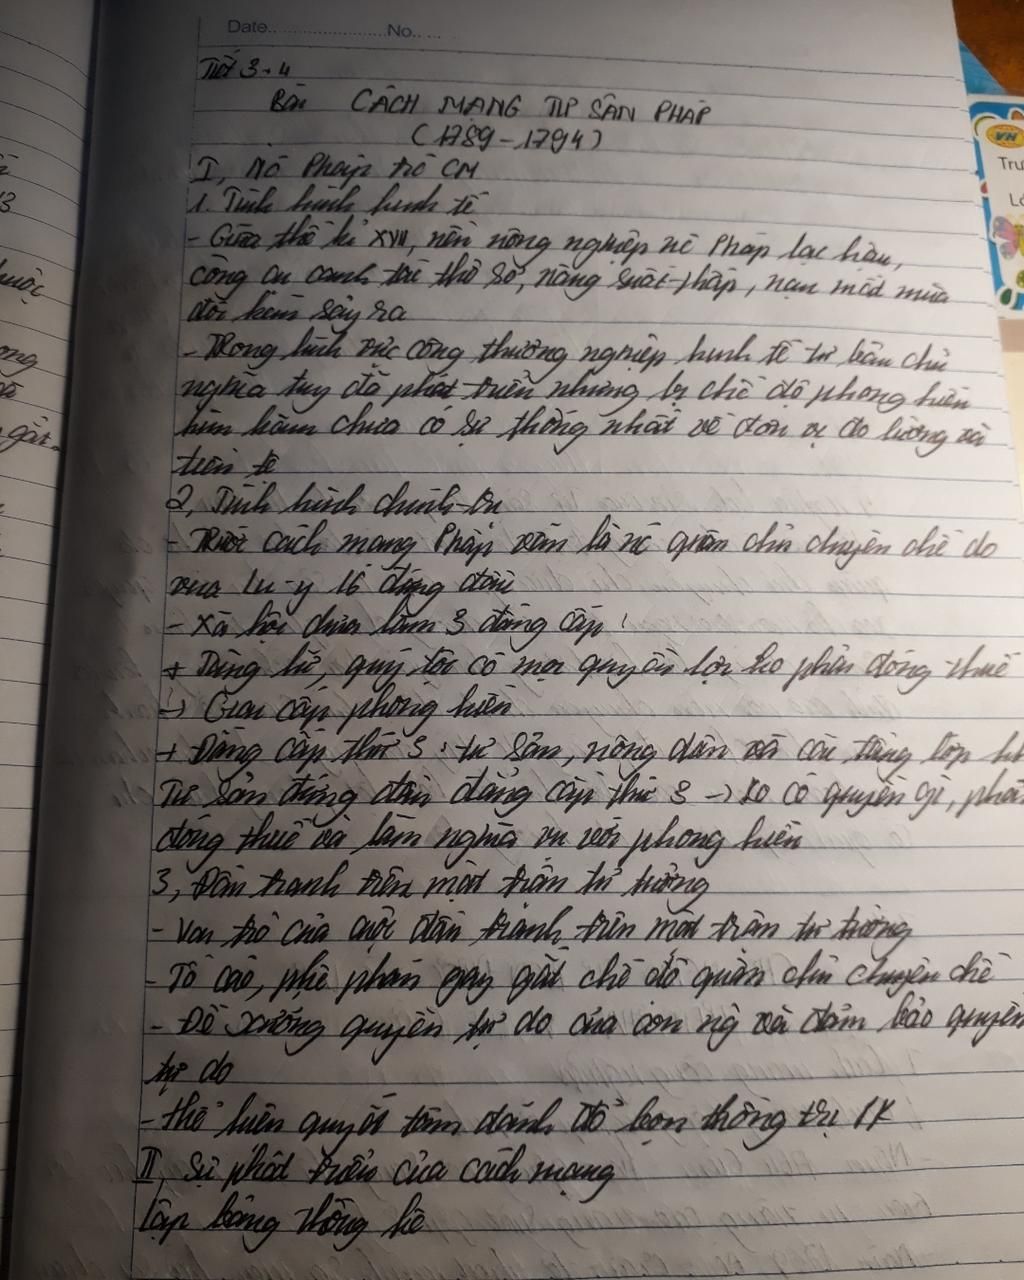 Date.. No..
Tiết 3+4
Bài CÁCH MẠNG TƯ SẢN PHÁP
(1789-1794)
I, Nc Pháp trc CM
1. Tình hình kinh tế
- Giữa thế kỉ XVII, nền nông nghiệp nc Pháp lạc hậu,
công cụ canh tác thô sơ, năng suất thấp, nạn mất mùa
đói kém sảy ra
- Trong lĩnh vực công thương nghiệp kinh tế tư bản chủ
nghĩa tuy đã phát triển nhưng bị chế độ phong kiến
kìm hãm chưa có sự thống nhất về đơn vị đo lường và
tiền tệ
2, Tình hình chính trị
- Trước cách mạng Pháp vẫn là nc quân chủ chuyên chế do
vua Lu-y 16 đứng đầu
- Xã hội chia làm 3 đẳng cấp:
+ Tăng lữ, quý tộc có mọi quyền lợi ko phải đóng thuế
=> Giai cấp phong kiến
+ Đẳng cấp thứ 3: tư sản, nông dân và các tầng lớp
Tư sản đứng đầu đẳng cấp thứ 3 -> ko có quyền gì, phải
đóng thuế và làm nghĩa vụ với phong kiến
3, Đấu tranh trên mặt trận tư tưởng
- Vai trò của cuộc đấu tranh trên mặt trận tư tưởng
- Tố cáo, phê phán gay gắt chế độ quân chủ chuyên chế
- Đề xướng quyền tự do của con ng và đảm bảo quyền
tự do
- thể hiện quyết tâm đánh đổ bọn thống trị PK
II, Sự phát triển của cách mạng
lập bảng thống kê
VH